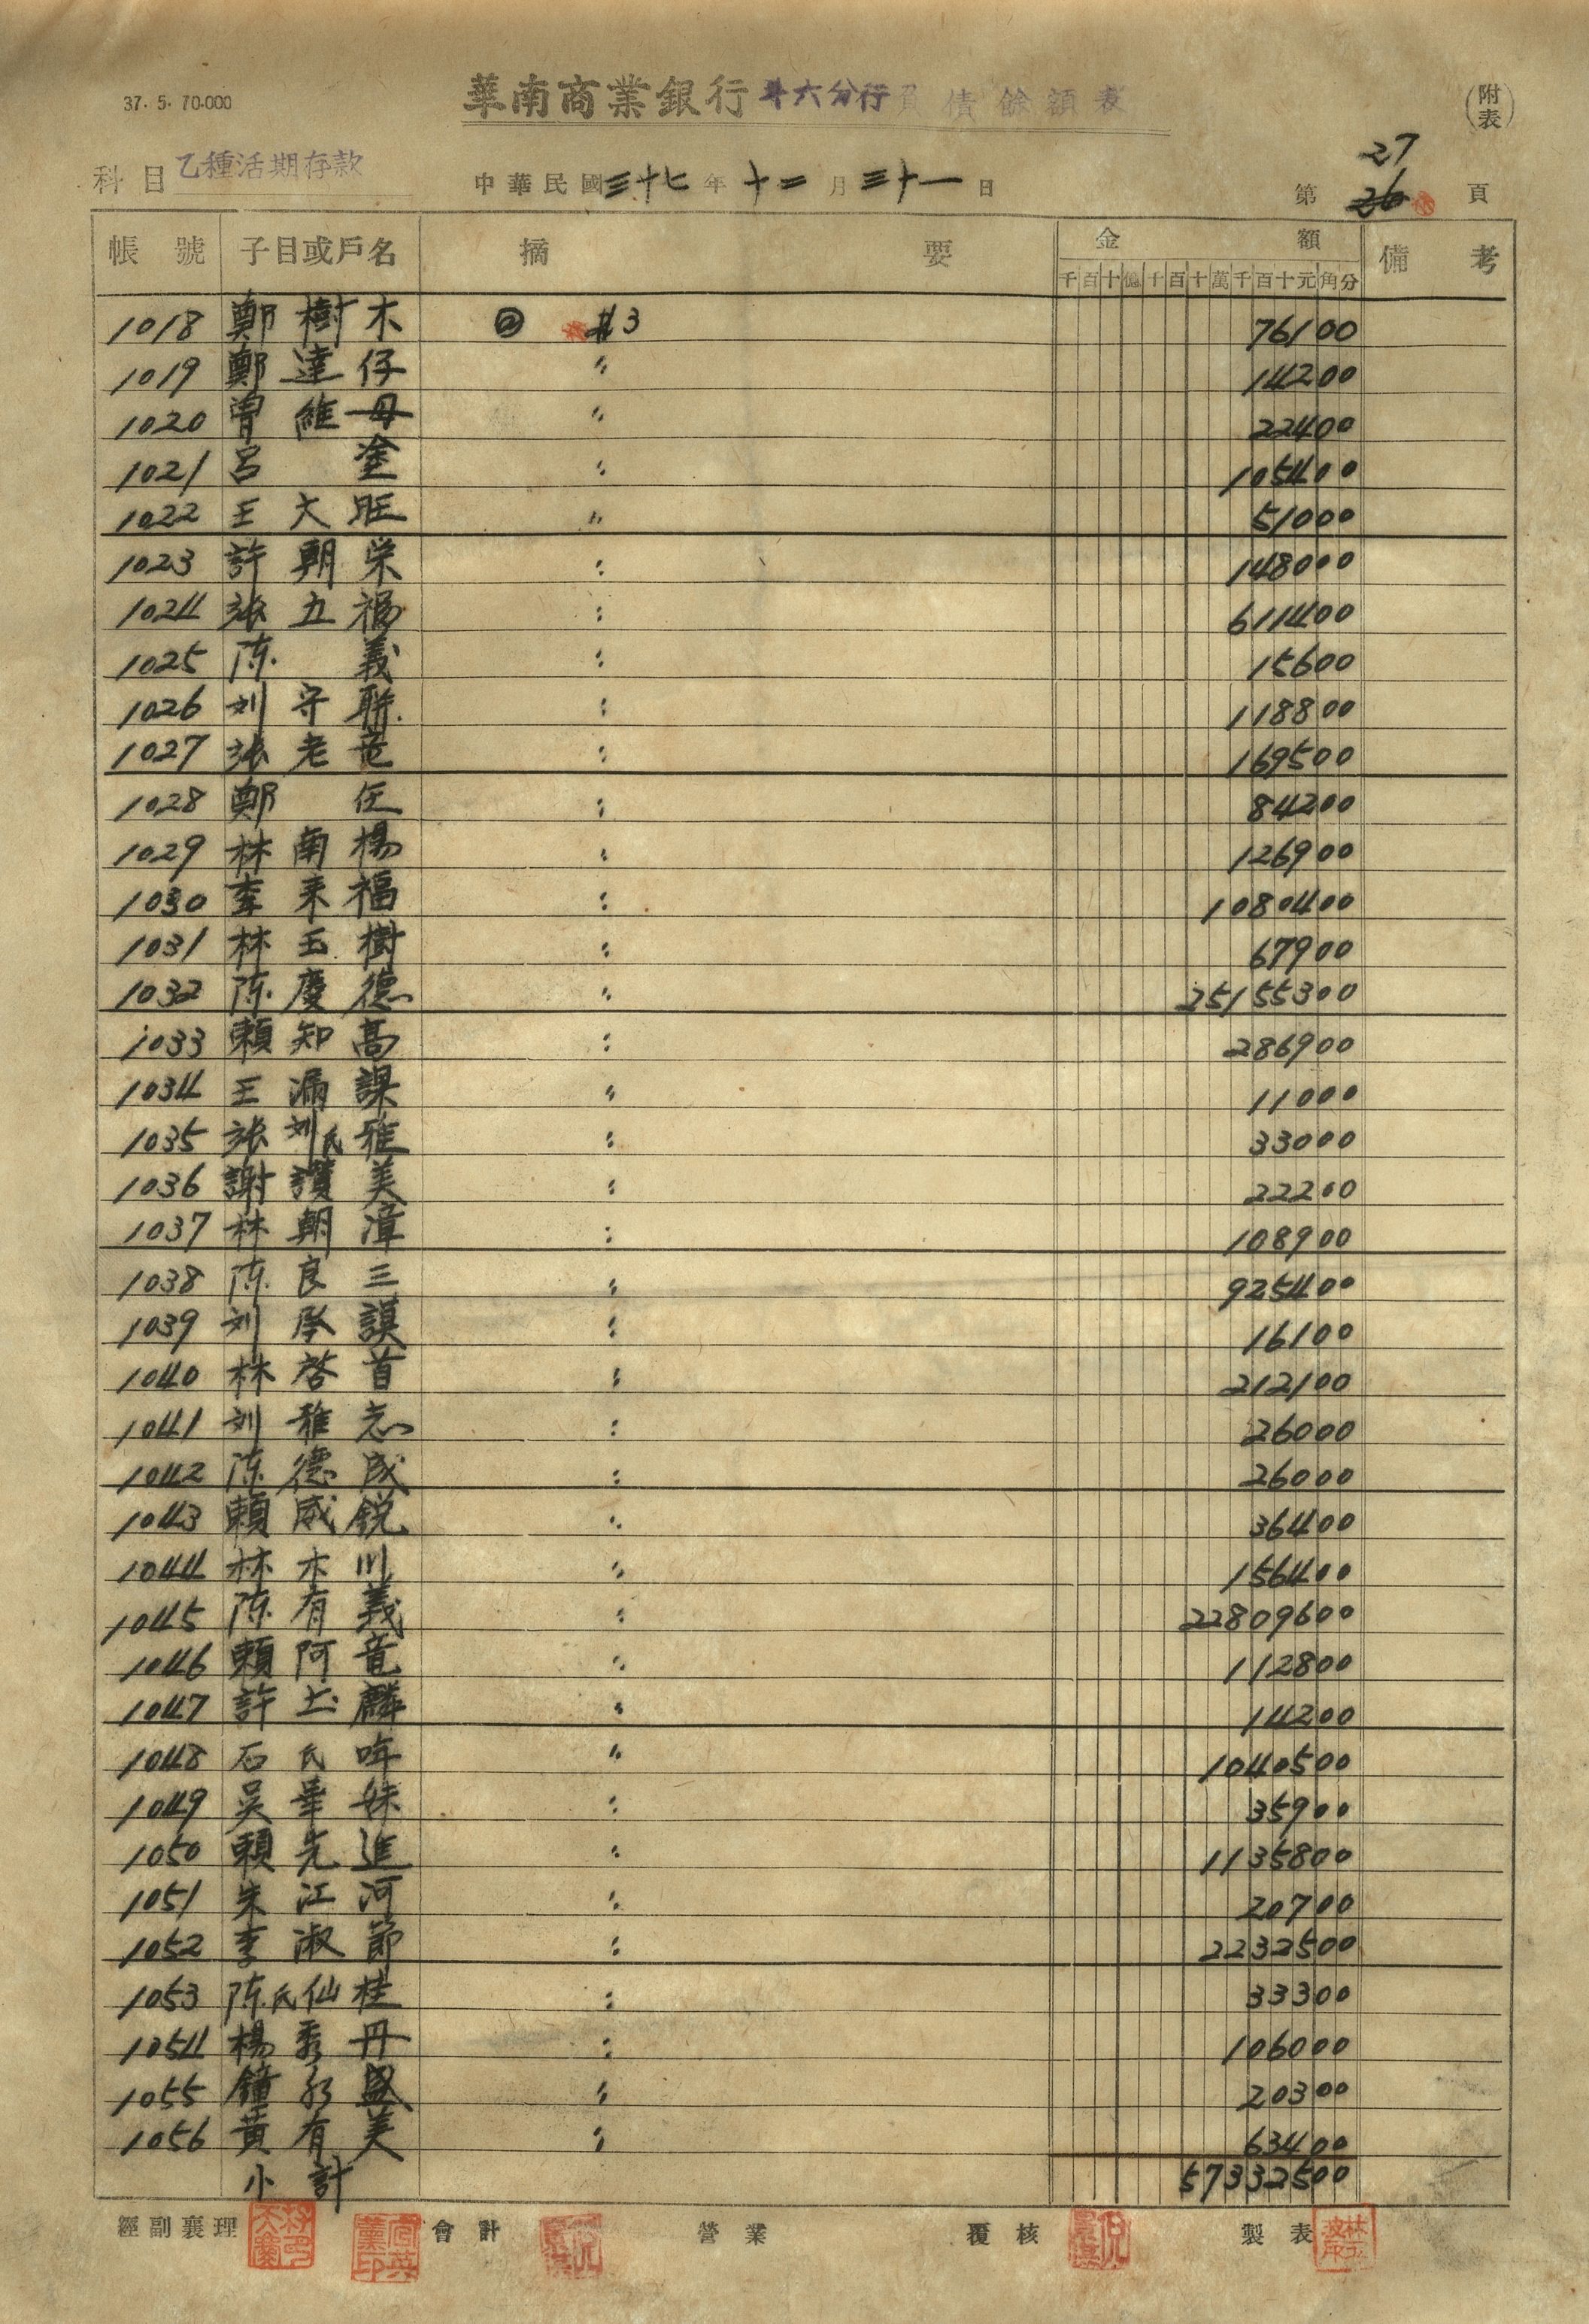 37. 5. 70.000
華南商業銀行斗六分行負債餘額表
(附表)
科目 乙種活期存款
中華民國三十七年十二月三十一日
27
第 26 頁
帳號 子目或戶名 摘要 金額 備考
千百十億千百十萬千百十元角分
1018 鄭樹木 #3 76100
1019 鄭達仔 〃 14200
1020 曾維母 〃 22400
1021 呂塗 〃 105400
1022 王大旺 〃 51000
1023 許朝栄 〃 148000
1024 張五福 〃 611400
1025 陳義 〃 15600
1026 刘守聯 〃 118800
1027 張老竜 〃 169500
1028 鄭任 〃 84200
1029 林南楊 〃 126900
1030 李来福 〃 1080400
1031 林玉樹 〃 67900
1032 陳慶德 〃 25155300
1033 賴知高 〃 286900
1034 王漏謀 〃 11000
1035 張刘氏雅 〃 33000
1036 謝讚美 〃 22200
1037 林朝漳 〃 108900
1038 陳良三 〃 925400
1039 刘承謨 〃 16100
1040 林啓首 〃 212100
1041 刘雅志 〃 26000
1042 陳德成 〃 26000
1043 賴威銳 〃 36400
1044 林木川 〃 156400
1045 陳有義 〃 22809600
1046 賴阿竜 〃 112800
1047 許土麟 〃 14200
1048 石氏 〃 1040500
1049 吳華妹 〃 35900
1050 賴先進 〃 1135800
1051 朱江河 〃 20700
1052 李淑節 〃 2232500
1053 陳氏仙桂 〃 33300
1054 楊秀丹 〃 106000
1055 鐘永盛 〃 20300
1056 黃有美 〃 63400
小計 57332500
經副襄理 會計 營業 覆核 製表